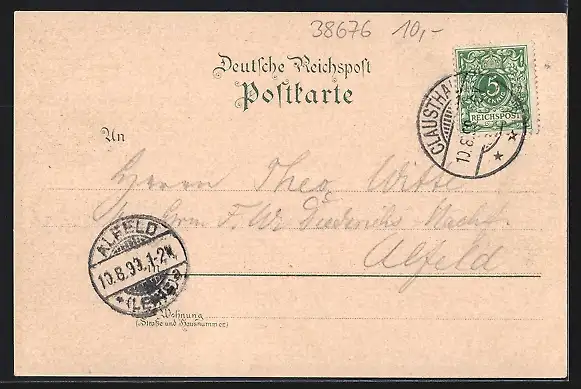 38676 10,-
Deutsche Reichspost
Postkarte
5
REICHSPOST
CLAUSTHAL
10.8.99
An
Herrn Theo Witte
F. W. Diederichs Nachf.
Alfeld
ALFELD
10.8.99. 1-2N.
* (LEINE) a
Wohnung
(Straße und Hausnummer)